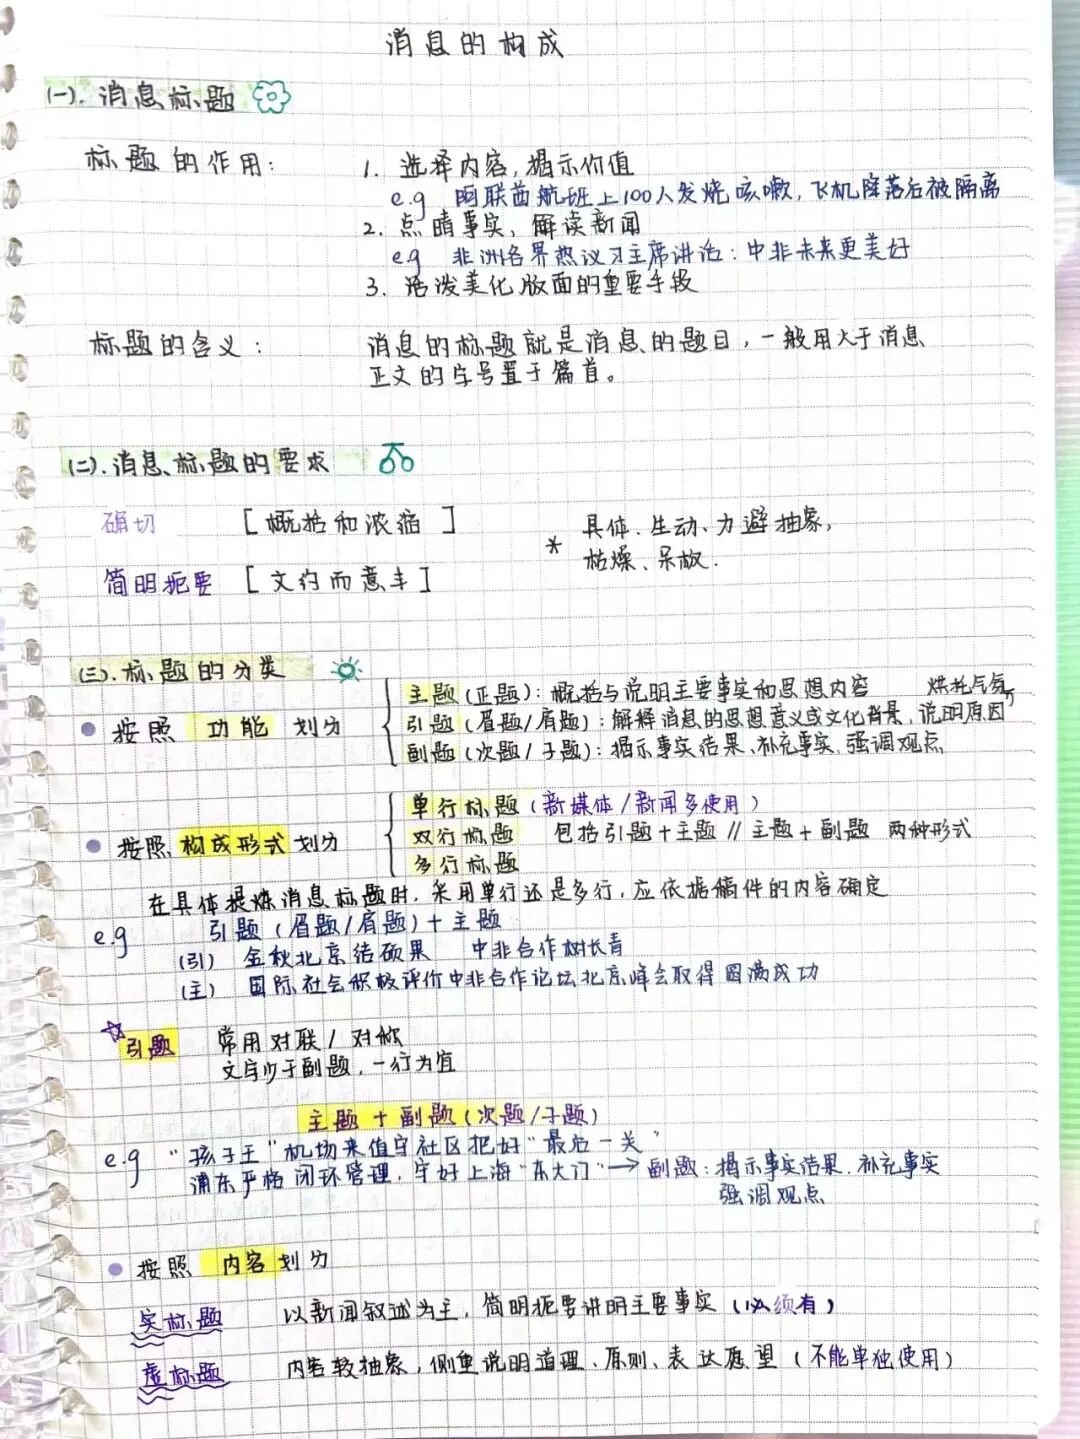 消息的构成
(一). 消息标题
标题的作用: 1. 选择内容, 揭示价值
e.g 阿联酋航班上100人发烧咳嗽, 飞机降落后被隔离
2. 点睛事实, 解读新闻
e.g 非洲各界热议习主席讲话: 中非未来更美好
3. 活泼美化版面的重要手段
标题的含义: 消息的标题就是消息的题目, 一般用大于消息
正文的字号置于篇首。
(二). 消息标题的要求
确切 [概括和浓缩]
* 具体、生动、力避抽象,
枯燥、呆板.
简明扼要 [文约而意丰]
(三). 标题的分类
按照 功能 划分
主题(正题): 概括与说明主要事实和思想内容 烘托气氛
引题(眉题/肩题): 解释消息的思想意义或文化背景、说明原因
副题(次题/子题): 揭示事实结果、补充事实、强调观点
按照 构成形式 划分
单行标题 (新媒体/新闻多使用)
双行标题 包括引题+主题 // 主题+副题 两种形式
多行标题
在具体提炼消息标题时, 采用单行还是多行, 应依据稿件的内容确定
e.g 引题(眉题/肩题)+主题
(引) 金秋北京结硕果 中非合作树长青
(主) 国际社会积极评价中非合作论坛北京峰会取得圆满成功
☆引题 常用对联/对称
文字少于副题, 一行为宜
主题+副题(次题/子题)
e.g "孩子王"机场来值守社区把好"最后一关"
浦东严格闭环管理, 守好上海"东大门"→副题: 揭示事实结果、补充事实
强调观点
按照 内容 划分
实标题 以新闻叙述为主, 简明扼要讲明主要事实 (必须有)
虚标题 内容较抽象, 侧重说明道理、原则、表达愿望 (不能单独使用)